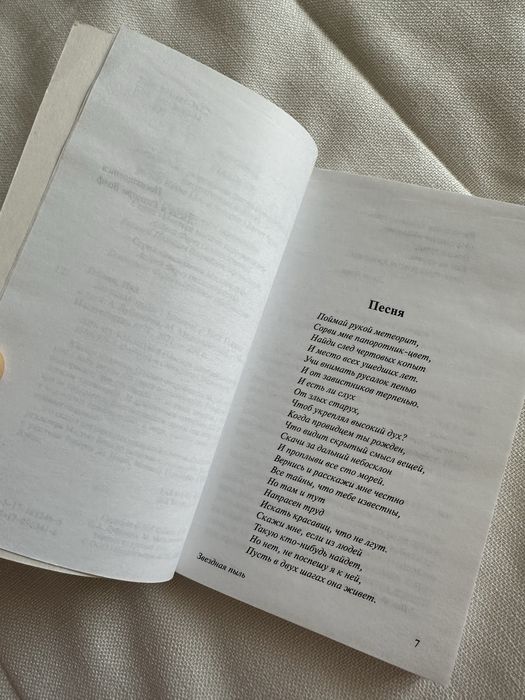 Песня
Поймай рукой метеорит,
Сорви мне папоротник-цвет,
Найди след чертовых копыт
И место всех ушедших лет.
Учи внимать русалок пенью
И от завистников терпенью.
И есть ли слух
От злых старух,
Чтоб укреплял высокий дух?
Когда провидцем ты рожден,
Что видит скрытый смысл вещей,
Скачи за дальний небосклон
И проплыви все сто морей.
Вернись и расскажи мне честно
Все тайны, что тебе известны,
Но там и тут
Напрасен труд
Искать красавиц, что не лгут.
Скажи мне, если из людей
Такую кто-нибудь найдет,
Но нет, не поспешу я к ней,
Пусть в двух шагах она живет.
Звездная пыль
7